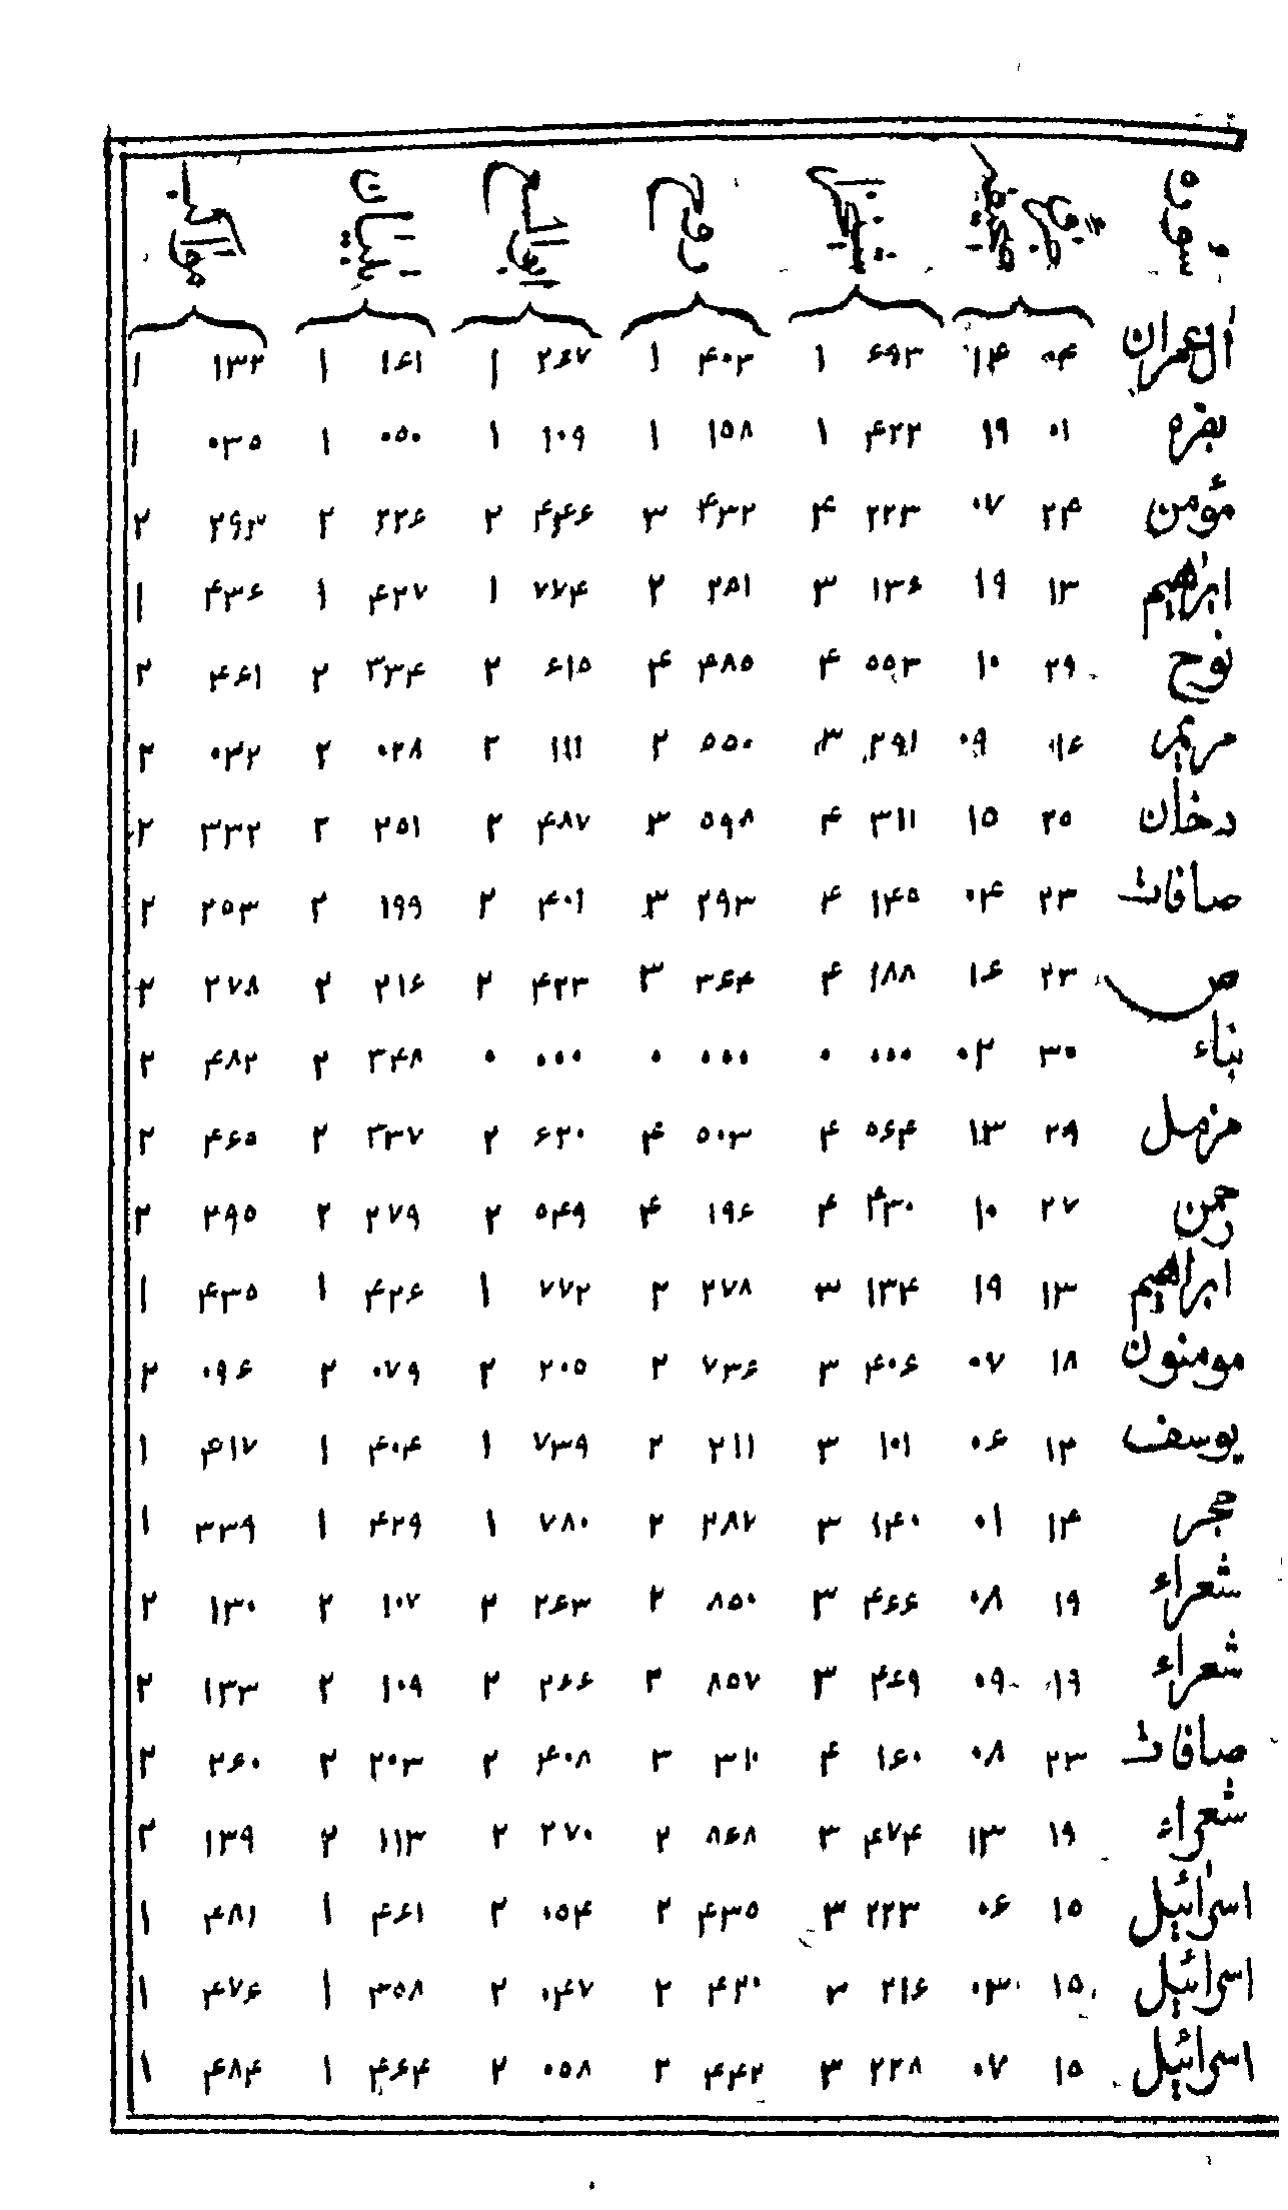 آل عمران ۰۴ ۱۴ ۶۹۳ ۱ ۴۰۲ ۱ ۲۶۷ ۱ ۱۶۱ ۱ ۱۳۲ ۱
بقره ۰۱ ۱۹ ۴۲۲ ۱ ۱۵۸ ۱ ۱۰۹ ۱ ۰۵۰ ۱ ۰۳۵ ۱
مؤمن ۲۴ ۰۷ ۲۲۳ ۴ ۴۳۲ ۳ ۴۴۶ ۲ ۲۲۶ ۲ ۲۹۳ ۲
ابراهیم ۱۳ ۱۹ ۱۳۶ ۳ ۲۸۱ ۲ ۷۷۴ ۱ ۴۲۷ ۱ ۴۳۶ ۱
نوح ۲۹ ۱۰ ۵۵۳ ۴ ۴۸۵ ۴ ۶۱۵ ۲ ۳۳۴ ۲ ۴۶۱ ۲
مریم ۱۶ ۰۹ ۲۹۱ ۳ ۵۵۰ ۲ ۱۱۱ ۲ ۰۲۸ ۲ ۰۳۲ ۲
دخان ۲۵ ۱۵ ۳۱۱ ۴ ۵۹۸ ۳ ۴۸۷ ۲ ۲۵۱ ۲ ۳۳۲ ۲
صافات ۲۳ ۰۴ ۱۴۵ ۴ ۲۹۳ ۳ ۴۰۱ ۲ ۱۹۹ ۲ ۲۵۳ ۲
ص ۲۳ ۱۶ ۱۸۸ ۴ ۳۶۴ ۳ ۴۲۳ ۲ ۲۱۶ ۲ ۲۷۸ ۲
بناء ۳۰ ۰۲ ۰۰۰ ۰ ۰۰۰ ۰ ۰۰۰ ۰ ۳۴۸ ۲ ۴۸۲ ۲
مزمل ۲۹ ۱۳ ۵۶۴ ۴ ۵۰۳ ۴ ۶۲۰ ۲ ۳۳۷ ۲ ۴۶۵ ۲
رحمن ۲۷ ۱۰ ۴۳۰ ۴ ۱۹۶ ۴ ۵۴۹ ۲ ۲۷۹ ۲ ۲۹۵ ۲
ابراهیم ۱۳ ۱۹ ۱۳۴ ۳ ۲۷۸ ۲ ۷۷۲ ۱ ۴۲۶ ۱ ۴۳۵ ۱
مومنون ۱۸ ۰۷ ۴۰۶ ۳ ۷۳۶ ۲ ۲۰۵ ۲ ۰۷۹ ۲ ۰۹۶ ۲
یوسف ۱۲ ۰۶ ۱۰۱ ۳ ۲۱۱ ۲ ۷۳۹ ۱ ۴۰۴ ۱ ۴۱۷ ۱
حجر ۱۴ ۰۱ ۱۴۰ ۳ ۲۸۷ ۲ ۷۸۰ ۱ ۴۲۹ ۱ ۳۳۹ ۱
شعراء ۱۹ ۰۸ ۴۶۶ ۳ ۸۵۰ ۲ ۲۶۳ ۲ ۱۰۷ ۲ ۱۳۰ ۲
شعراء ۱۹ ۰۹ ۴۶۹ ۳ ۸۵۷ ۲ ۲۶۶ ۲ ۱۰۹ ۲ ۱۳۳ ۲
صافات ۲۳ ۰۸ ۱۶۰ ۴ ۳۱۰ ۳ ۴۰۸ ۲ ۲۰۳ ۲ ۲۶۰ ۲
شعراء ۱۹ ۱۳ ۴۷۴ ۳ ۸۶۸ ۲ ۲۷۰ ۲ ۱۱۳ ۲ ۱۳۹ ۲
اسرائیل ۱۵ ۰۶ ۲۲۳ ۳ ۴۳۵ ۲ ۰۵۴ ۲ ۴۶۱ ۱ ۴۸۱ ۱
اسرائیل ۱۵ ۰۳ ۲۱۶ ۳ ۴۲۰ ۲ ۰۴۷ ۲ ۳۵۸ ۱ ۴۷۶ ۱
اسرائیل ۱۵ ۰۷ ۲۲۸ ۳ ۴۴۲ ۲ ۰۵۸ ۲ ۴۶۴ ۱ ۴۸۴ ۱